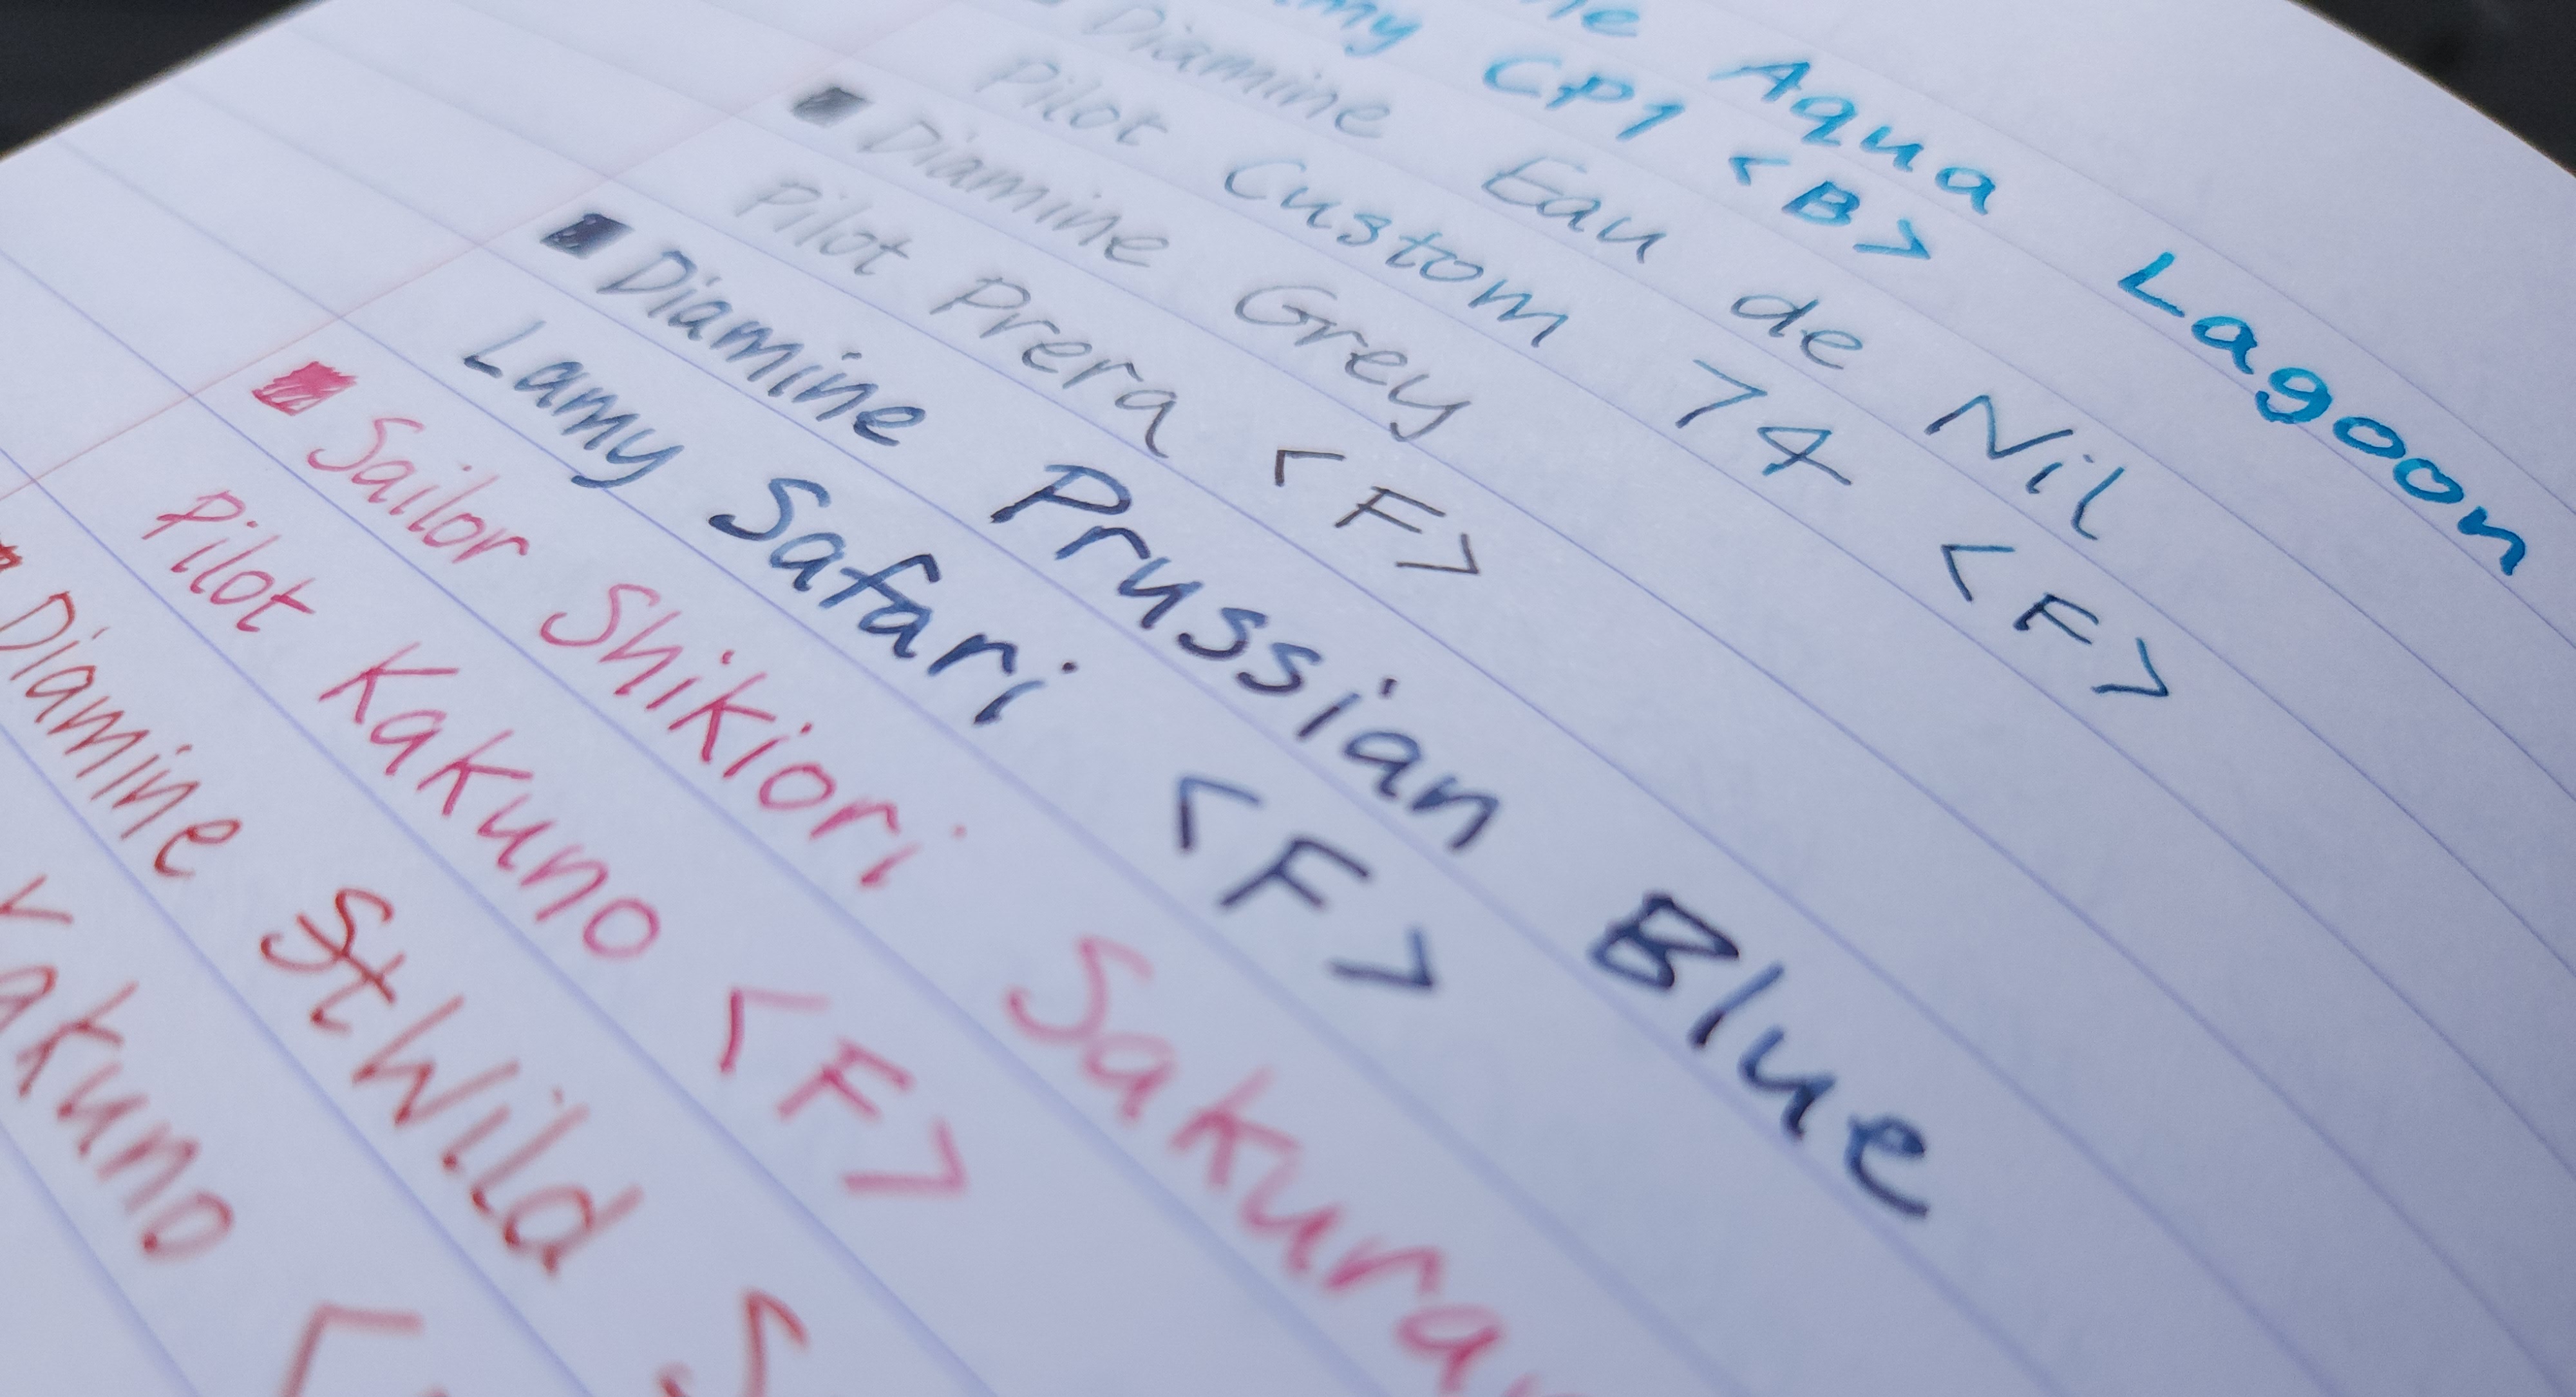 Aqua Lagoon
CP1 <B>
Diamine Eau de Nil
Pilot Custom 74 <F>
Diamine Grey
Pilot Prera <F>
Diamine Prussian Blue
Lamy Safari <F>
Sailor Shikiori Sakura
Pilot Kakuno <F>
Diamine Wild S
akuno <